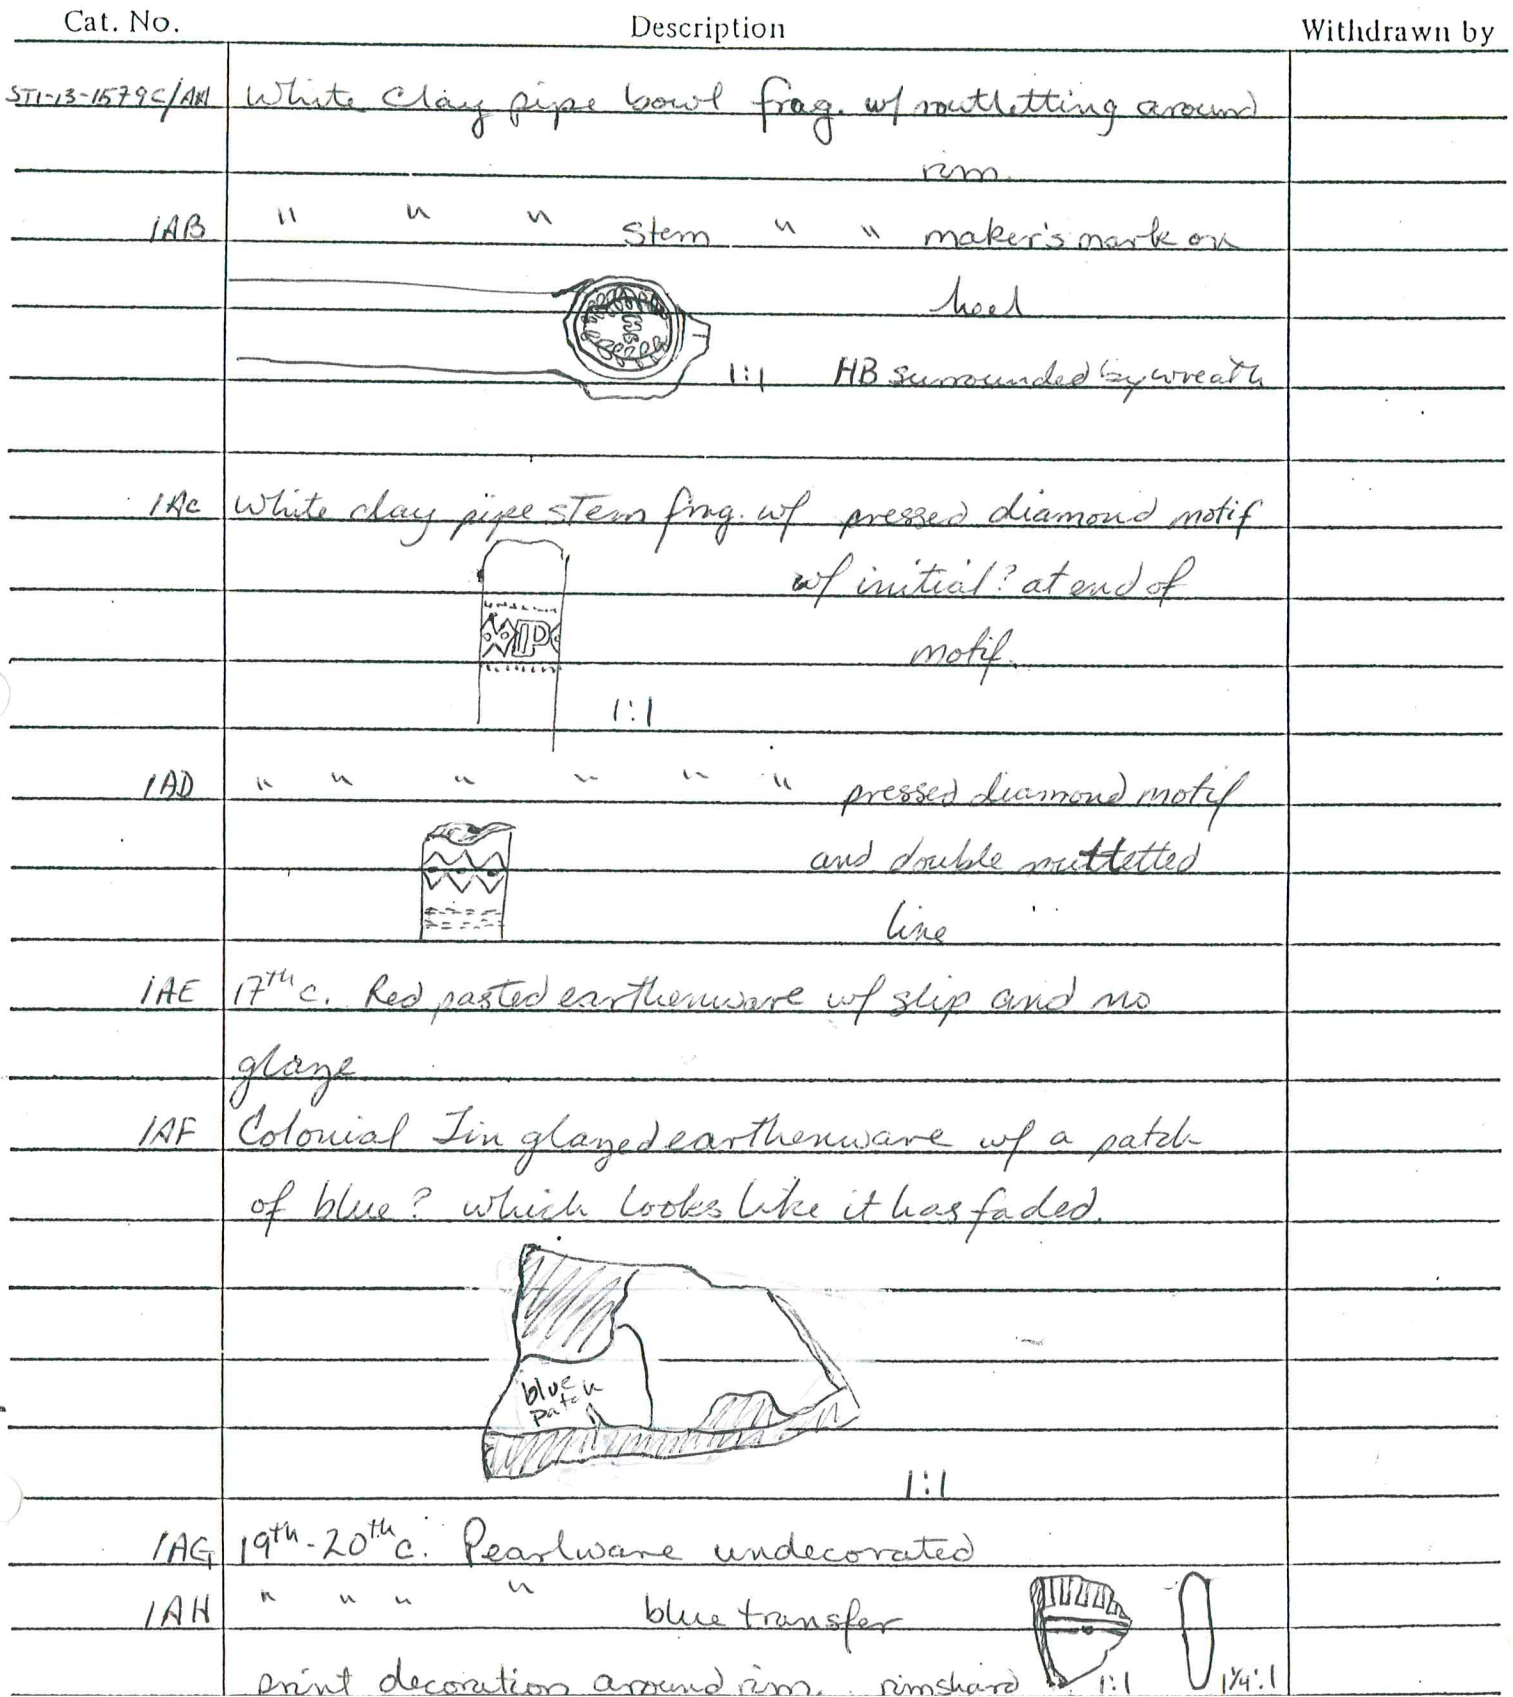 Cat. No. Description Withdrawn by
STI-13-1579C/AA White Clay pipe bowl frag. w/ routletting around
rim.
/AB " " " Stem " " maker's mark on
heel
HB
1:1 HB surrounded by wreath
/AC White clay pipe stem frag. w/ pressed diamond motif
w/ initial? at end of
IP
motif.
1:1
/AD " " " " " " pressed diamond motif
and double routtetted
line
/AE 17th c. Red pasted earthenware w/ slip and no
glaze
/AF Colonial Tin glazed earthenware w/ a patch
of blue? which looks like it has faded.
blue
patch
1:1
/AG 19th-20th c. Pearlware undecorated
/AH " " " " blue transfer
print decoration around rim. rimshard 1:1 1/4:1